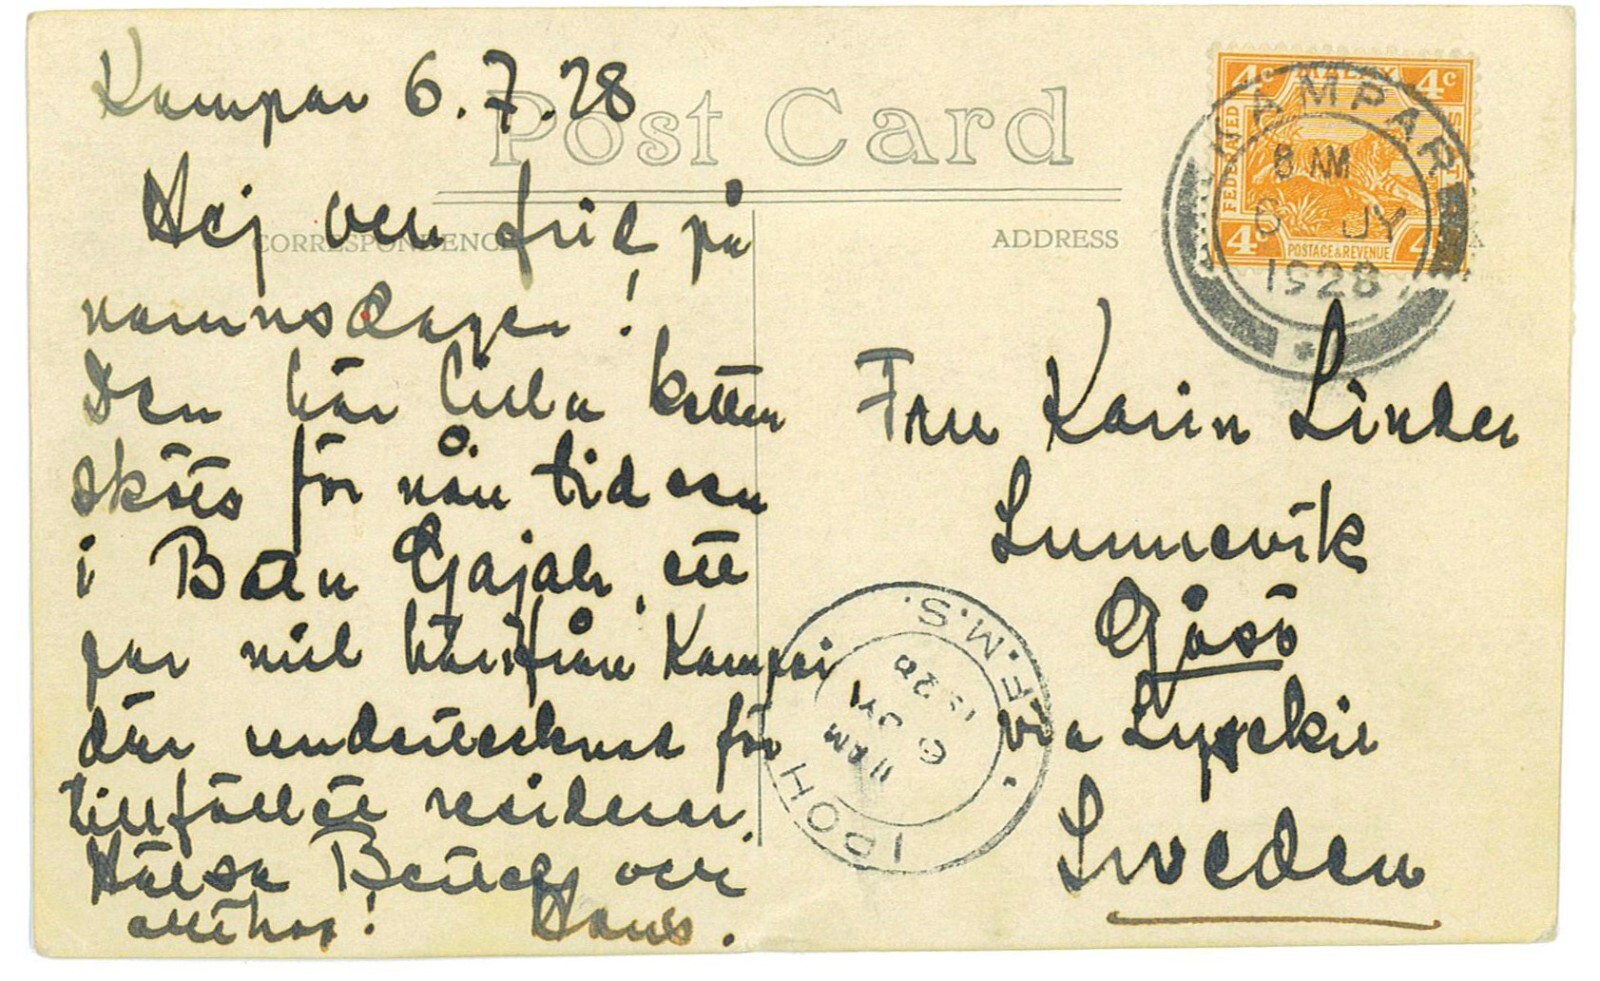 Kampar 6.7.28
Post Card
CORRESPONDENCE
ADDRESS
Hej och frid på
namnsdagen!
Den här lilla
sköts för nån tid sen
i Batu Gajah, ett
par mil härifrån Kampar
där undertecknad för
tillfället residerar.
Hälsa Bertel och
Hans.
Fru Karin Linder
Lunnevik
Gåsö
via Lysekil
Sweden
FEDERATED MALAY
4c 4c
4 4
POSTAGE & REVENUE
KAMPAR
8 AM
6 JY
1928
IPOH F.M.S.
11 AM
6 JY
1928